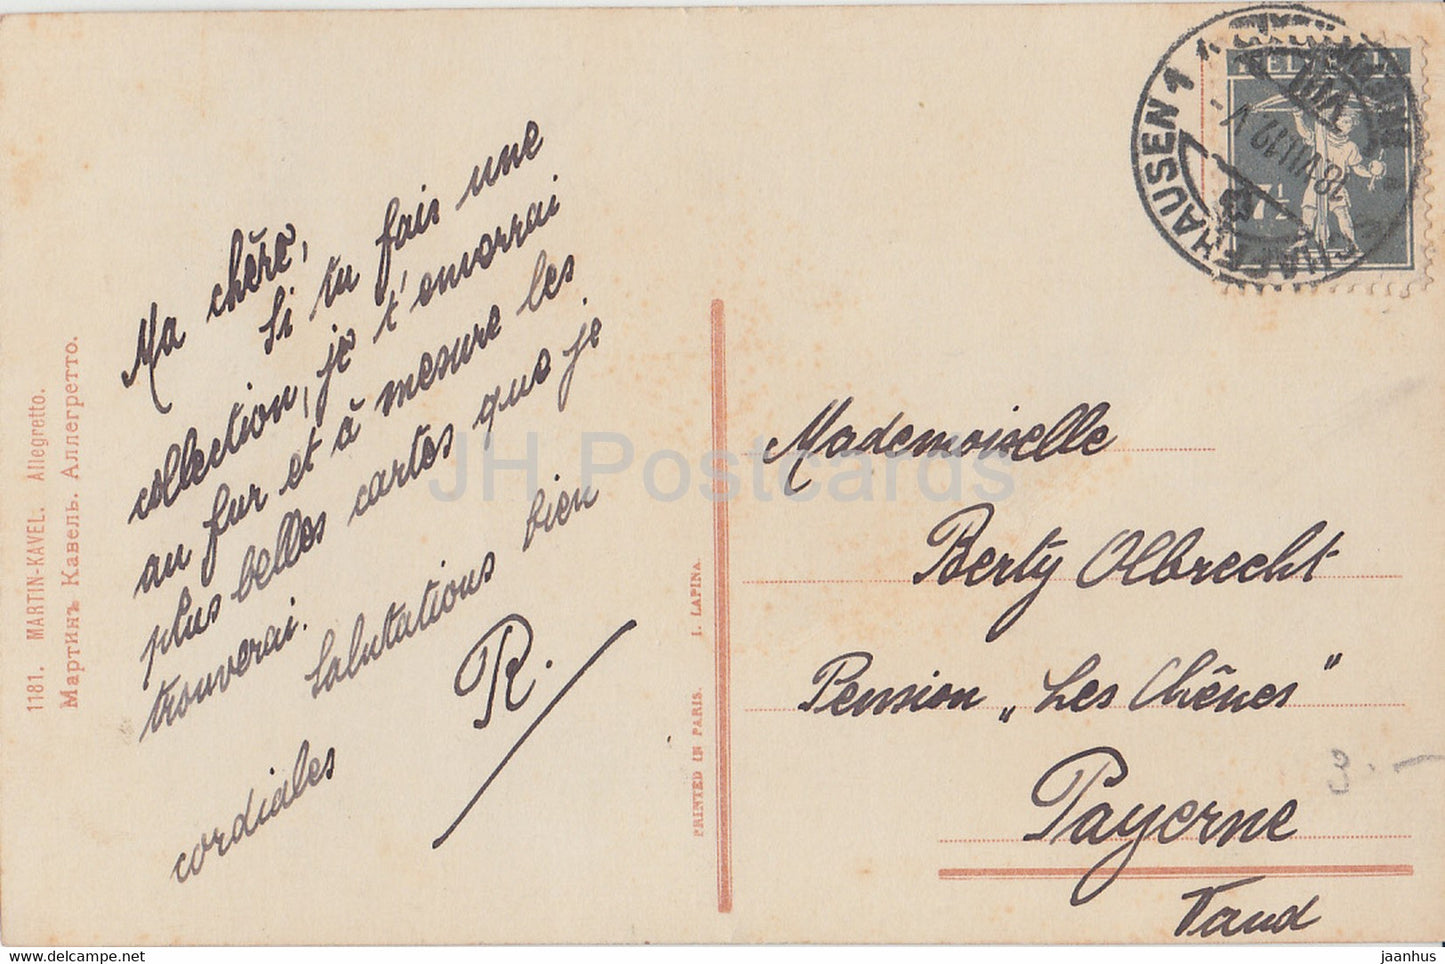 1181. MARTIN-KAVEL. Allegretto.
Мартинъ Кавель. Аллегретто.
Ma chère,
Si tu fais une
collection, je t'envorrai
au fur et à mesure les
plus belles cartes que je
trouverai.
Salutations bien
cordiales
R.
PRINTED IN PARIS. I. LAPINA.
HELVETIA
7½
SCHAFFHAUSEN 1
Mademoiselle
Berty Olbrecht
Pension „Les Chênes"
Payerne
Vaud
JH Postcards
jh-postcards.com
jaanhus